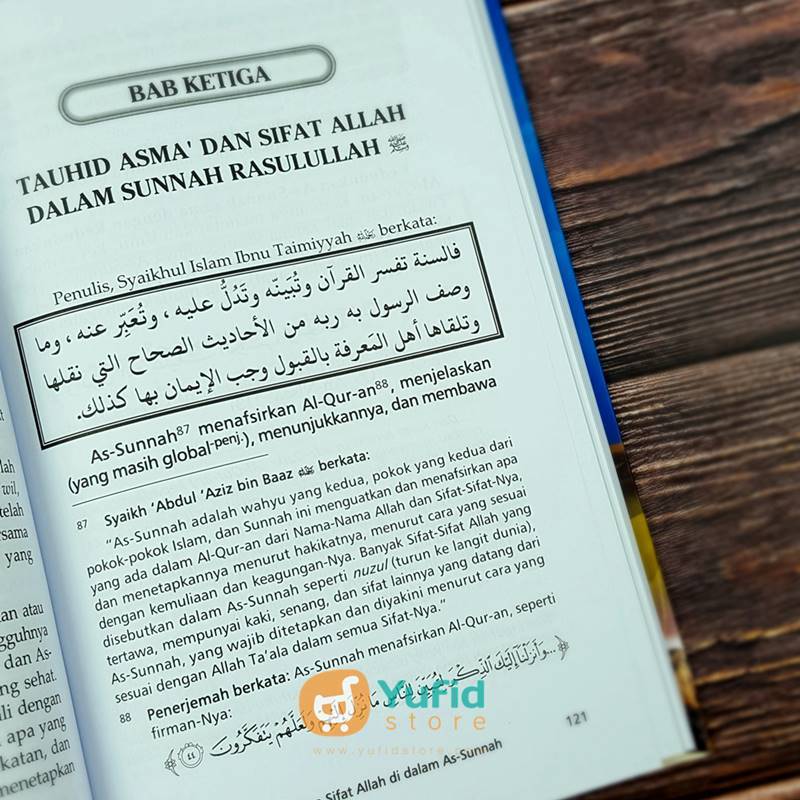 BAB KETIGA
TAUHID ASMA' DAN SIFAT ALLAH
DALAM SUNNAH RASULULLAH ﷺ
Penulis, Syaikhul Islam Ibnu Taimiyyah berkata:
فالسنة تفسر القرآن وتُبَينّه وتَدُلُّ عليه ، وتُعَبِّر عنه ، وما
وصف الرسول به ربه من الأحاديث الصحاح التي نقلها
وتلقاها أهل المَعرفة بالقبول وجب الإيمان بها كذلك.
As-Sunnah87 menafsirkan Al-Qur-an88, menjelaskan
(yang masih global-penj.), menunjukkannya, dan membawa
87 Syaikh 'Abdul 'Aziz bin Baaz berkata:
"As-Sunnah adalah wahyu yang kedua, pokok yang kedua dari
pokok-pokok Islam, dan Sunnah ini menguatkan dan menafsirkan apa
yang ada dalam Al-Qur-an dari Nama-Nama Allah dan Sifat-Sifat-Nya,
dan menetapkannya menurut hakikatnya, menurut cara yang sesuai
dengan kemuliaan dan keagungan-Nya. Banyak Sifat-Sifat Allah yang
disebutkan dalam As-Sunnah seperti nuzul (turun ke langit dunia),
tertawa, mempunyai kaki, senang, dan sifat lainnya yang datang dari
As-Sunnah, yang wajib ditetapkan dan diyakini menurut cara yang
sesuai dengan Allah Ta'ala dalam semua Sifat-Nya."
88 Penerjemah berkata: As-Sunnah menafsirkan Al-Qur-an, seperti
firman-Nya:
...وَأَنزَلْنَا إِلَيْكَ الذِّكْرَ لِتُبَيِّنَ لِلنَّاسِ مَا نُزِّلَ إِلَيْهِمْ وَلَعَلَّهُمْ يَتَفَكَّرُونَ ٤٤
Sifat Allah di dalam As-Sunnah
121
lah
wil,
telah
rsama
yang
an atau
gguhnya
dan As-
ng sehat.
ili dengan
apa yang
katan, dan
menetapkan
Yufid
store
www.yufidstore.com